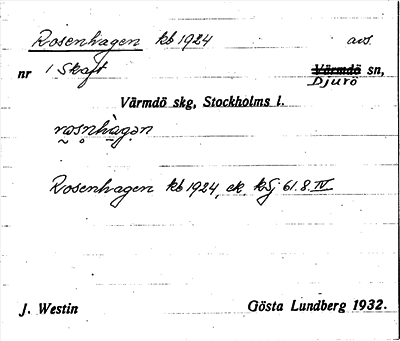 Rosenhagen kb 1924 avs.
nr 1 Skaft Värmdö sn,
Djurö
Värmdö skg, Stockholms l.
rosnhagen
Rosenhagen kb 1924, ek. kbj 61.8.IV
J. Westin Gösta Lundberg 1932.